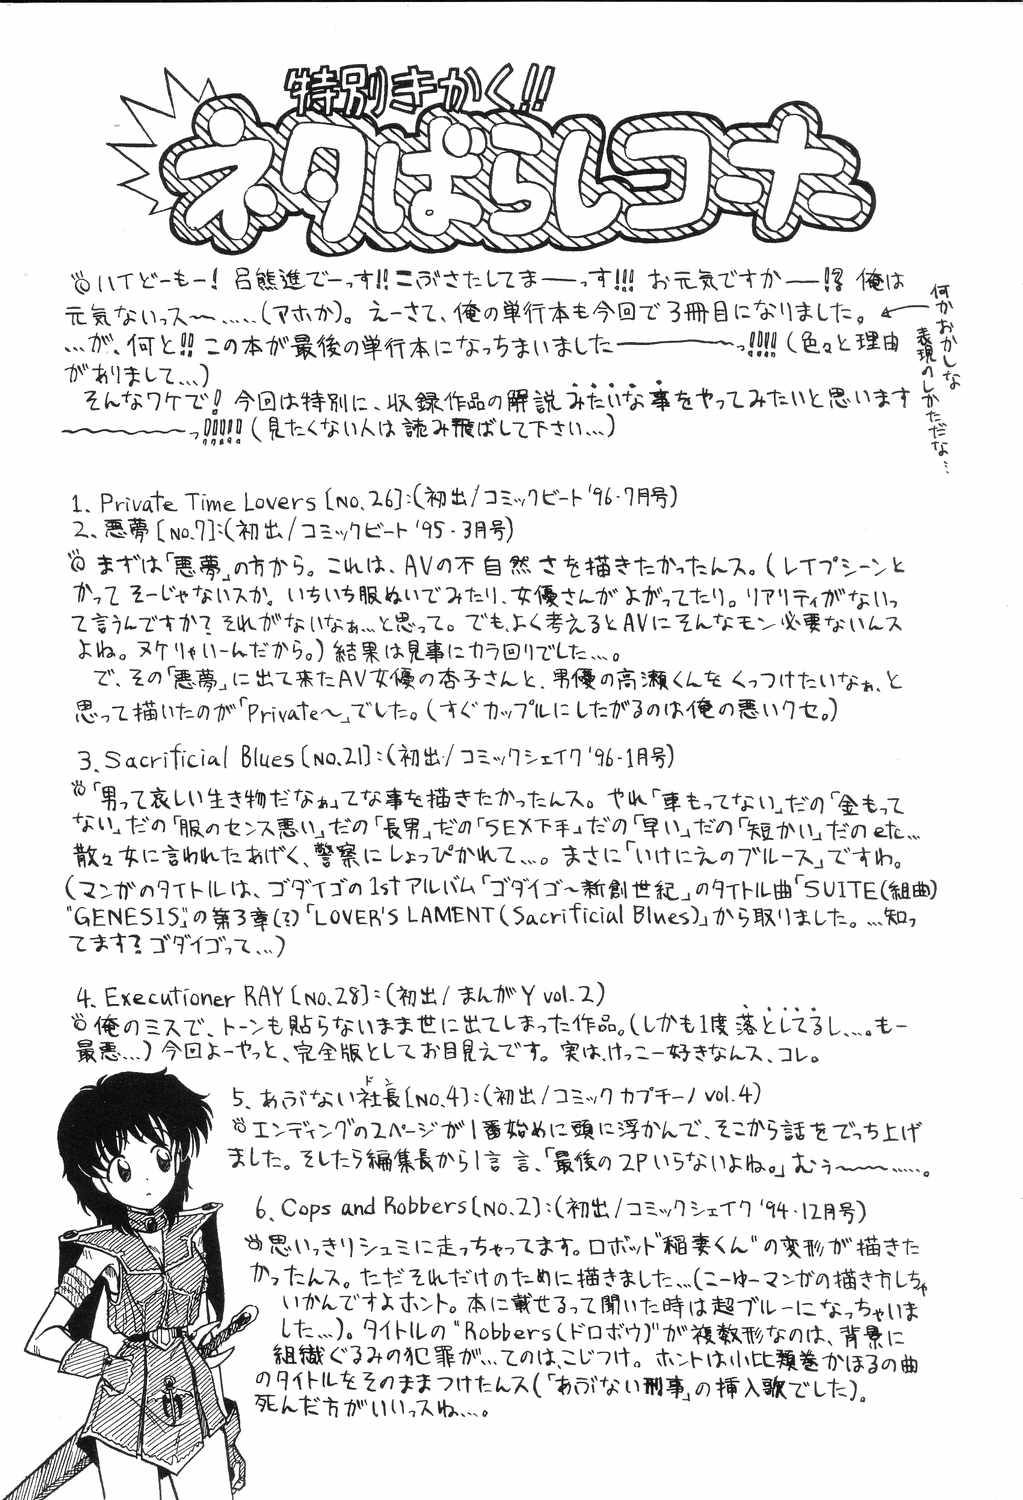 特別きかく!!
ネタばらしコーナー
ハイどーもー! 呂熊進でーっす!! ごぶさたしてまーーっす!!! お元気ですかーー!? 俺は
元気ないっス〜……(アホか)。えーさて、俺の単行本も今回で3冊目になりました。
何かおかしな
表現のしかただな…
…が、何と!! この本が最後の単行本になっちまいましたーーーっ!!!! (色々と理由
がありまして…)
そんなワケで! 今回は特別に、収録作品の解説みたいな事をやってみたいと思います
〜〜〜〜っ!!!!! (見たくない人は読み飛ばして下さい…)
1. Private Time Lovers [NO.26]:(初出/コミックビート'96・7月号)
2. 悪夢[NO.7]:(初出/コミックビート'95・3月号)
まずは「悪夢」の方から。これは、AVの不自然さを描きたかったんス。(レイプシーンと
かってそーじゃないスか。いちいち服ぬいでみたり、女優さんがよがってたり。リアリティがないっ
て言うんですか? それがないなぁ…と思って。でも、よく考えるとAVにそんなモン必要ないんス
よね。ヌケりゃいーんだから。)結果は見事にカラ回りでした…。
で、その「悪夢」に出て来たAV女優の杏子さんと、男優の高瀬くんをくっつけたいなぁ、と
思って描いたのが「Private〜」でした。(すぐカップルにしたがるのは俺の悪いクセ。)
3. Sacrificial Blues[NO.21]:(初出/コミックシェイク'96・1月号)
「男って哀しい生き物だなぁ」てな事を描きたかったんス。やれ「車もってない」だの「金もって
ない」だの「服のセンス悪い」だの「長男」だの「SEX下手」だの「早い」だの「短かい」だのetc…
散々女に言われたあげく、警察にしょっぴかれて…。まさに「いけにえのブルース」ですわ。
(マンガのタイトルは、ゴダイゴの1stアルバム「ゴダイゴ〜新創世紀」のタイトル曲「SUITE(組曲)
"GENESIS」の第3章(?)「LOVER'S LAMENT(Sacrificial Blues)」から取りました。…知っ
てます? ゴダイゴって…)
4. Executioner RAY[NO.28]:(初出/まんがY vol.2)
俺のミスで、トーンも貼らないまま世に出てしまった作品。(しかも1度落としてるし…。もー
最悪…)今回よーやっと、完全版としてお目見えです。実は、けっこー好きなんス、コレ。
5. あぶない社長[NO.4]:(初出/コミックカプチーノvol.4)
ドン
エンディングの2ページが1番始めに頭に浮かんで、そこから話をでっち上げ
ました。そしたら編集長から1言言、「最後の2Pいらないよね。」むぅ〜〜……。
6. Cops and Robbers[NO.2]:(初出/コミックシェイク'94・12月号)
思いっきりシュミに走っちゃってます。ロボット"稲妻くん"の変形が描きた
かったんス。ただそれだけのために描きました…(こーゆーマンガの描き方しちゃ
いかんですよホント。本に載せるって聞いた時は超ブルーになっちゃいま
した…)。タイトルの"Robbers(ドロボウ)"が複数形なのは、背景に
組織ぐるみの犯罪が…てのは、こじつけ。ホントは小比類巻かほるの曲
のタイトルをそのままつけたんス(「あぶない刑事」の挿入歌でした)。
死んだ方がいいっスね…。